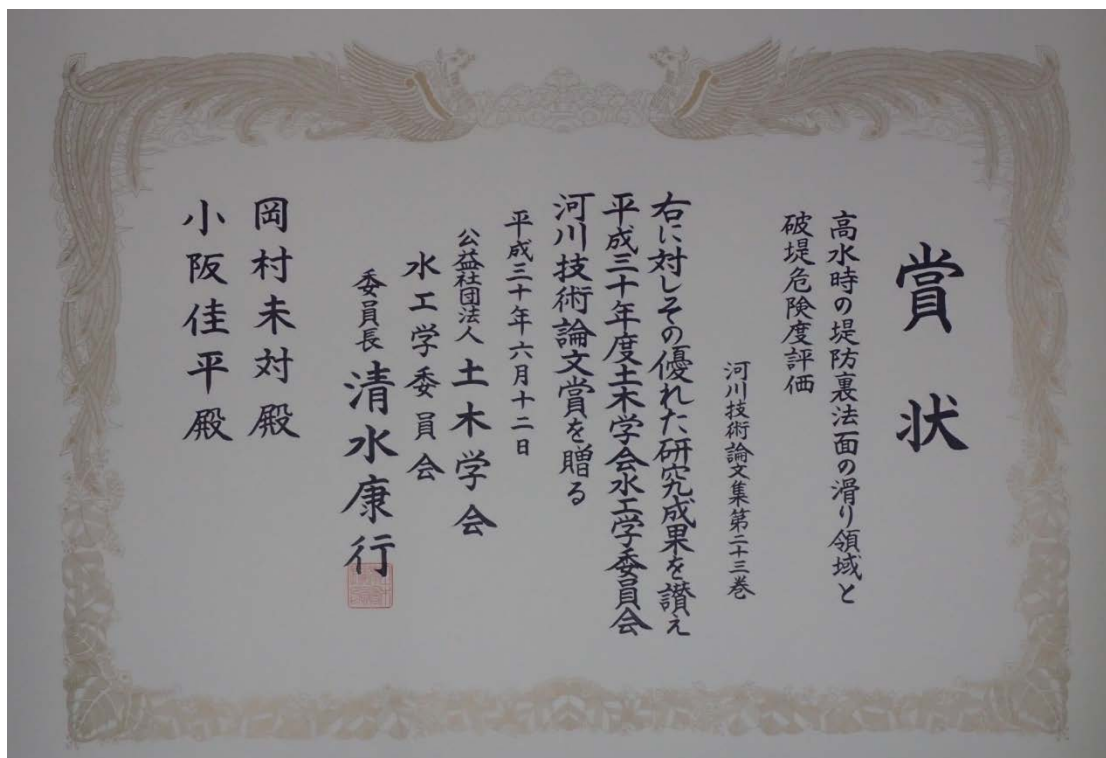 賞状
高水時の堤防裏法面の滑り領域と
破堤危険度評価
河川技術論文集第二十三巻
右に対しその優れた研究成果を讃え
平成三十年度土木学会水工学委員会
河川技術論文賞を贈る
平成三十年六月十二日
公益社団法人土木学会
水工学委員会
委員長清水康行
岡村未対殿
小阪佳平殿